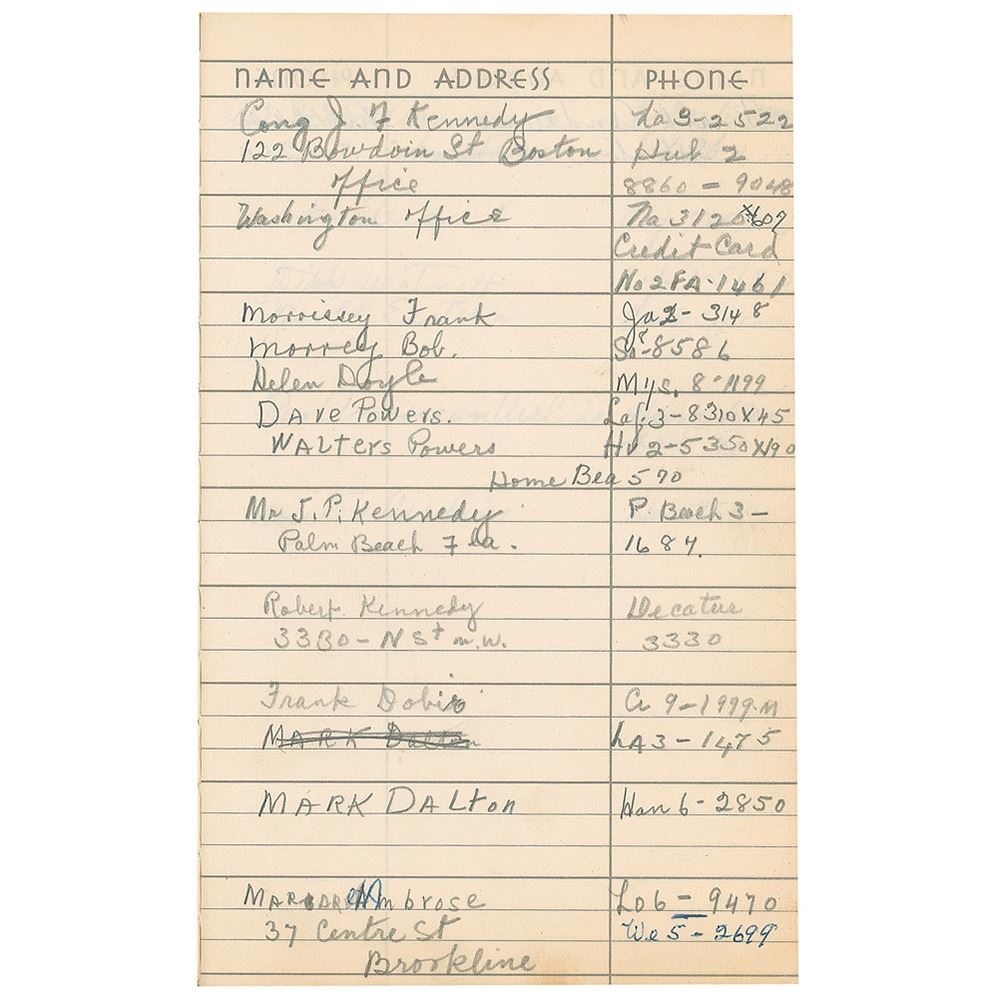 NAME AND ADDRESS PHONE
Cong J. F Kennedy La 3-2522
122 Bowdoin St Boston Hub 2
office 8860 - 9048
Washington office Na 3120 x607
Credit Card
No 2FA-1461
Morrissey Frank Ja 2- 3148
Morrey Bob. 8586
Helen Doyle Mys. 8-1199
DAVe Powers. Laf. 3-8310X45
WALTers Powers HU 2-5350X190
Home Bea 570
Mr J. P. Kennedy P. Beach 3-
Palm Beach Fla. 1687.
Robert Kennedy Decatur
3330- N St N.W. 3330
Frank Dobie 9-1999-M
MARK Dalton LA3-1475
MARK DALton Han 6-2850
MARGARet Ambrose Lo6-9470
37 Centre St We 5-2699
Brookline